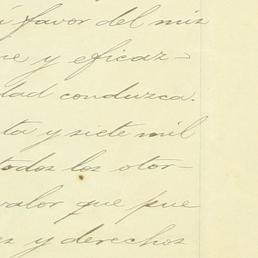 favor del mis
y eficaz-
dad conduzca.
ta y siete mil
todos los otor-
valor que pue
y derechos